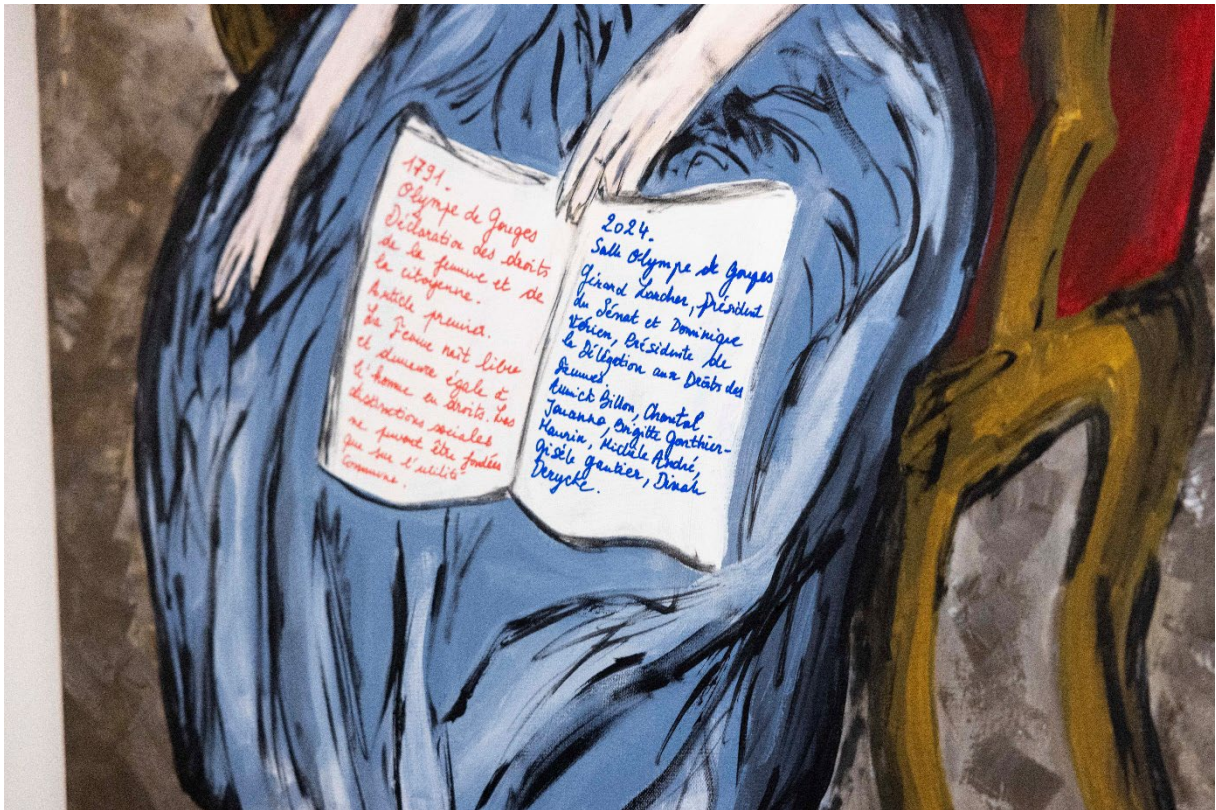 1791.
Olympe de Gouges
Déclaration des droits
de la femme et de
la citoyenne.
Article premier.
La Femme naît libre
et demeure égale à
l'homme en droits. Les
distinctions sociales
ne peuvent être fondées
que sur l'utilité
Commune.
2024.
Salle Olympe de Gouges
Gérard Larcher, président
du Sénat et Dominique
Vérien, Présidente de
la Délégation aux Droits des
Femmes.
Annick Billon, Chantal
Jouanno, Brigitte Gonthier-
Maurin, Michèle André,
Gisèle Gautier, Dinah
Derycke.